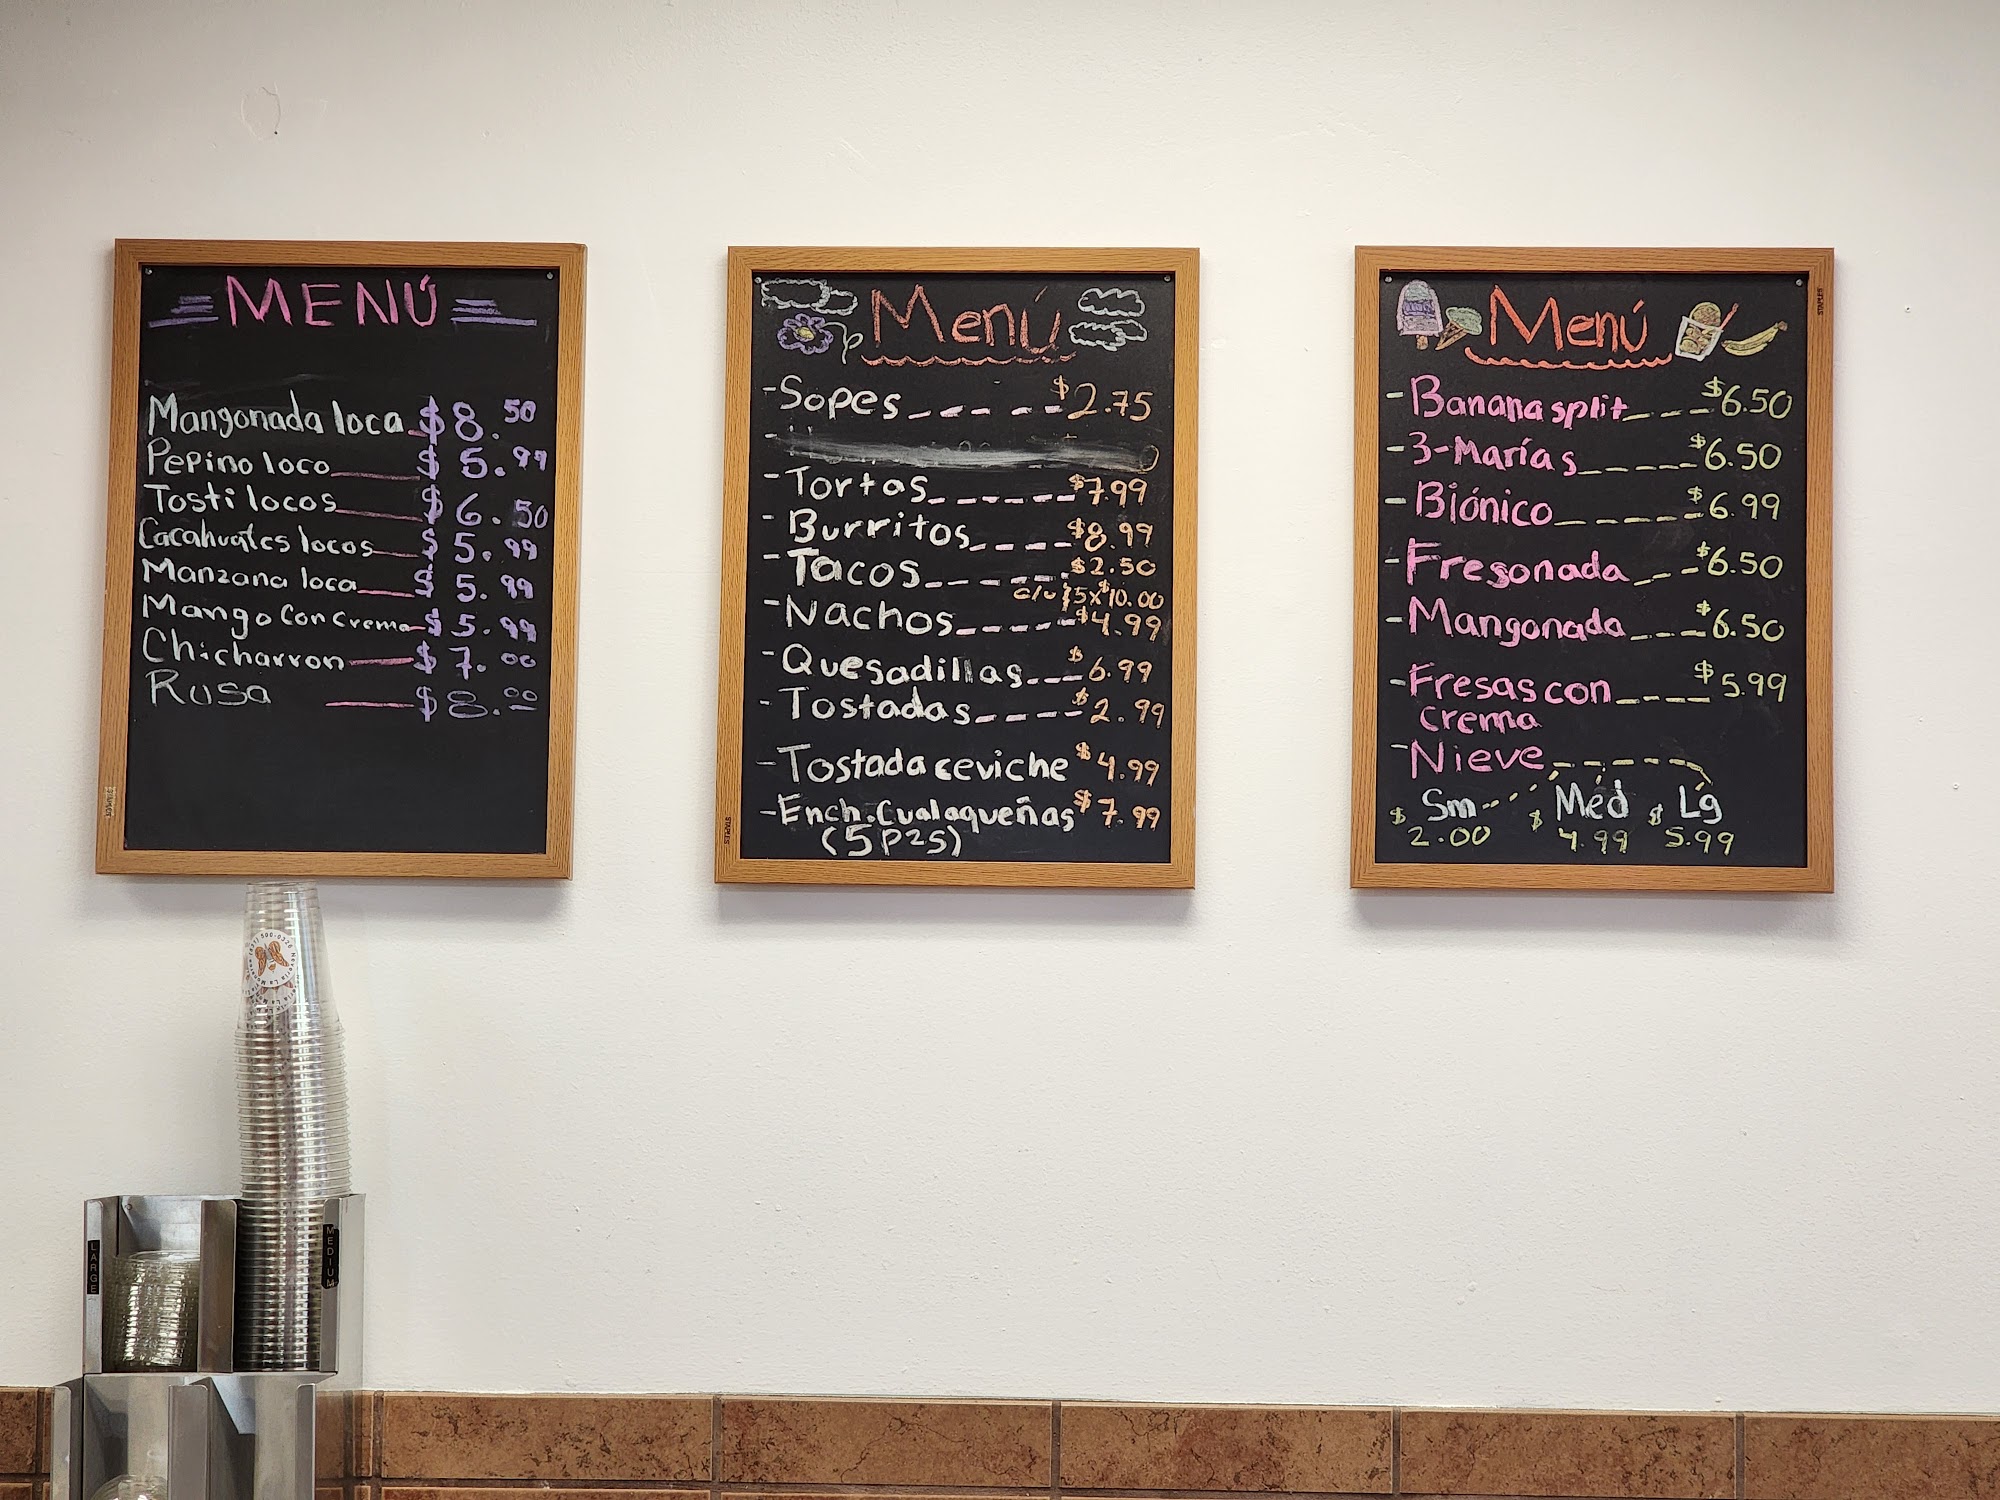 MENÚ
Mangonada loca $8.50
Pepino loco $5.99
Tosti locos $6.50
Cacahuates locos $5.99
Manzana loca $5.99
Mango Con Crema $5.99
Chicharron $7.00
Rusa $8.00
STAPLES
Menú
-Sopes $2.75
-Tortas $7.99
-Burritos $8.99
-Tacos $2.50
c/u 5x$10.00
-Nachos $4.99
-Quesadillas $6.99
-Tostadas $2.99
-Tostada ceviche $4.99
-Ench.Cualaqueñas $7.99
(5 Pzs)
STAPLES
Menú
-Banana split $6.50
-3-Marías $6.50
-Biónico $6.99
-Fresonada $6.50
-Mangonada $6.50
-Fresas con $5.99
crema
-Nieve
Sm Med Lg
$2.00 $4.99 $5.99
STAPLES
LARGE
MEDIUM